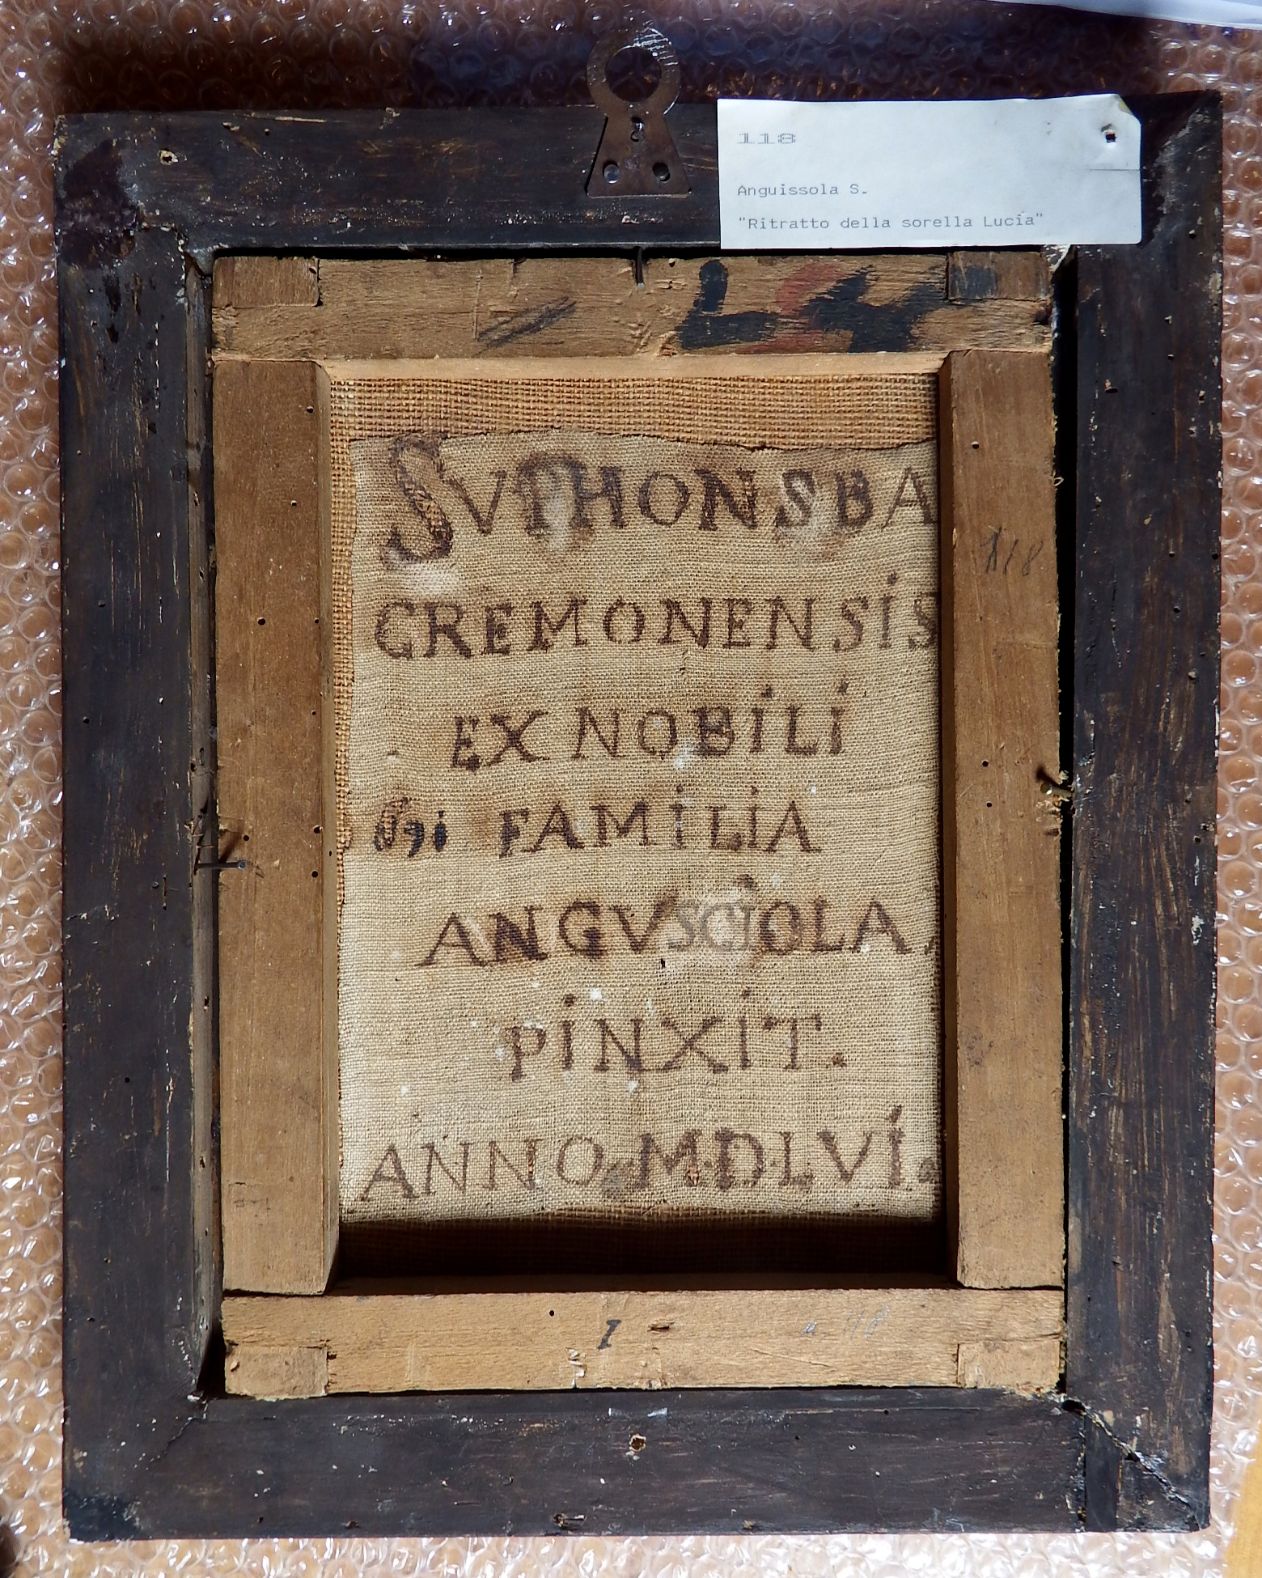 118
Anguissola S.
"Ritratto della sorella Lucia"
118
SVPHONSBA
CREMONENSiS
EX NOBiLi
FAMiLiA
ANGVSCiOLA
PiNXiT.
ANNO MDLVi